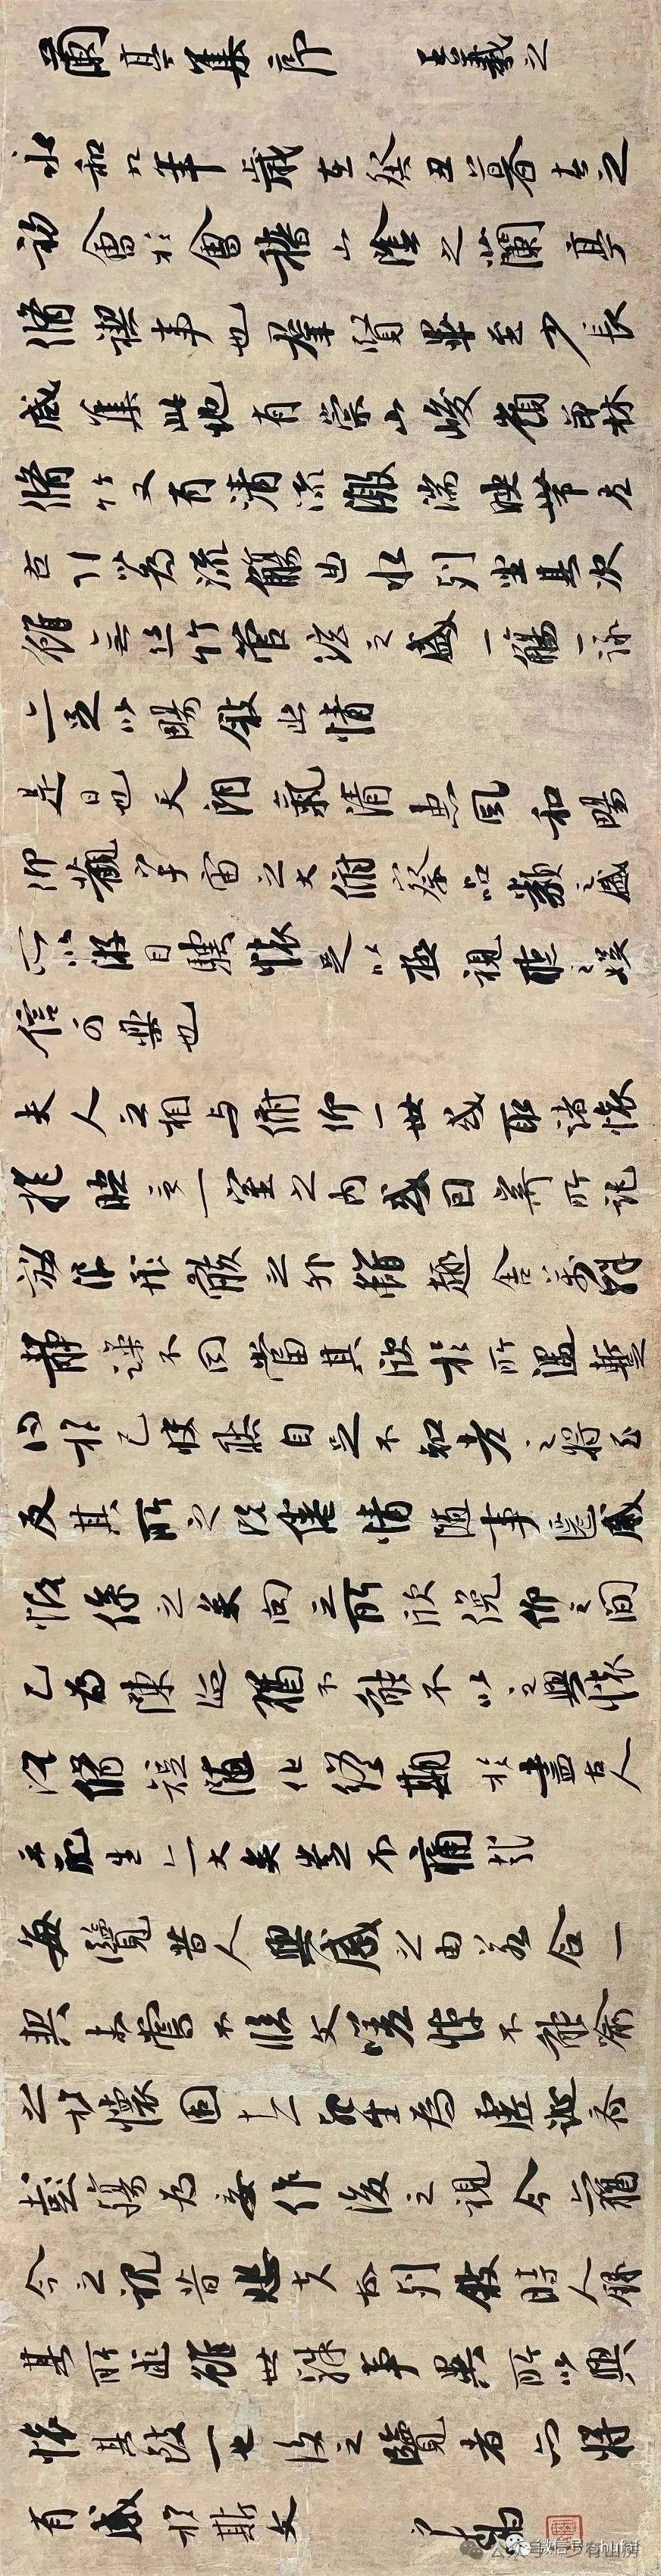 蘭亭集序 王羲之
永和九年歲在癸丑暮春之
初會於會稽山陰之蘭亭
脩禊事也羣賢畢至少長
咸集此地有崇山峻嶺茂林
脩竹又有清流激湍映帶左
右引以為流觴曲水列坐其次
雖無絲竹管弦之盛一觴一詠
亦足以暢敘幽情
是日也天朗氣清惠風和暢
仰觀宇宙之大俯察品類之盛
所以游目騁懷足以極視聽之娛
信可樂也
夫人之相與俯仰一世或取諸懷
抱晤言一室之內或因寄所託
放浪形骸之外雖趣舍萬殊
靜躁不同當其欣於所遇暫
得於己快然自足不知老之將至
及其所之既倦情隨事遷感
慨係之矣向之所欣俛仰之間
已為陳迹猶不能不以之興懷
況脩短隨化終期於盡古人
云死生亦大矣豈不痛哉
每覽昔人興感之由若合一
契未嘗不臨文嗟悼不能喻
之於懷固知一死生為虛誕齊
彭殤為妄作後之視今亦猶
今之視昔悲夫故列敘時人錄
其所述雖世殊事異所以興
懷其致一也後之覽者亦將
有感於斯文
微信号